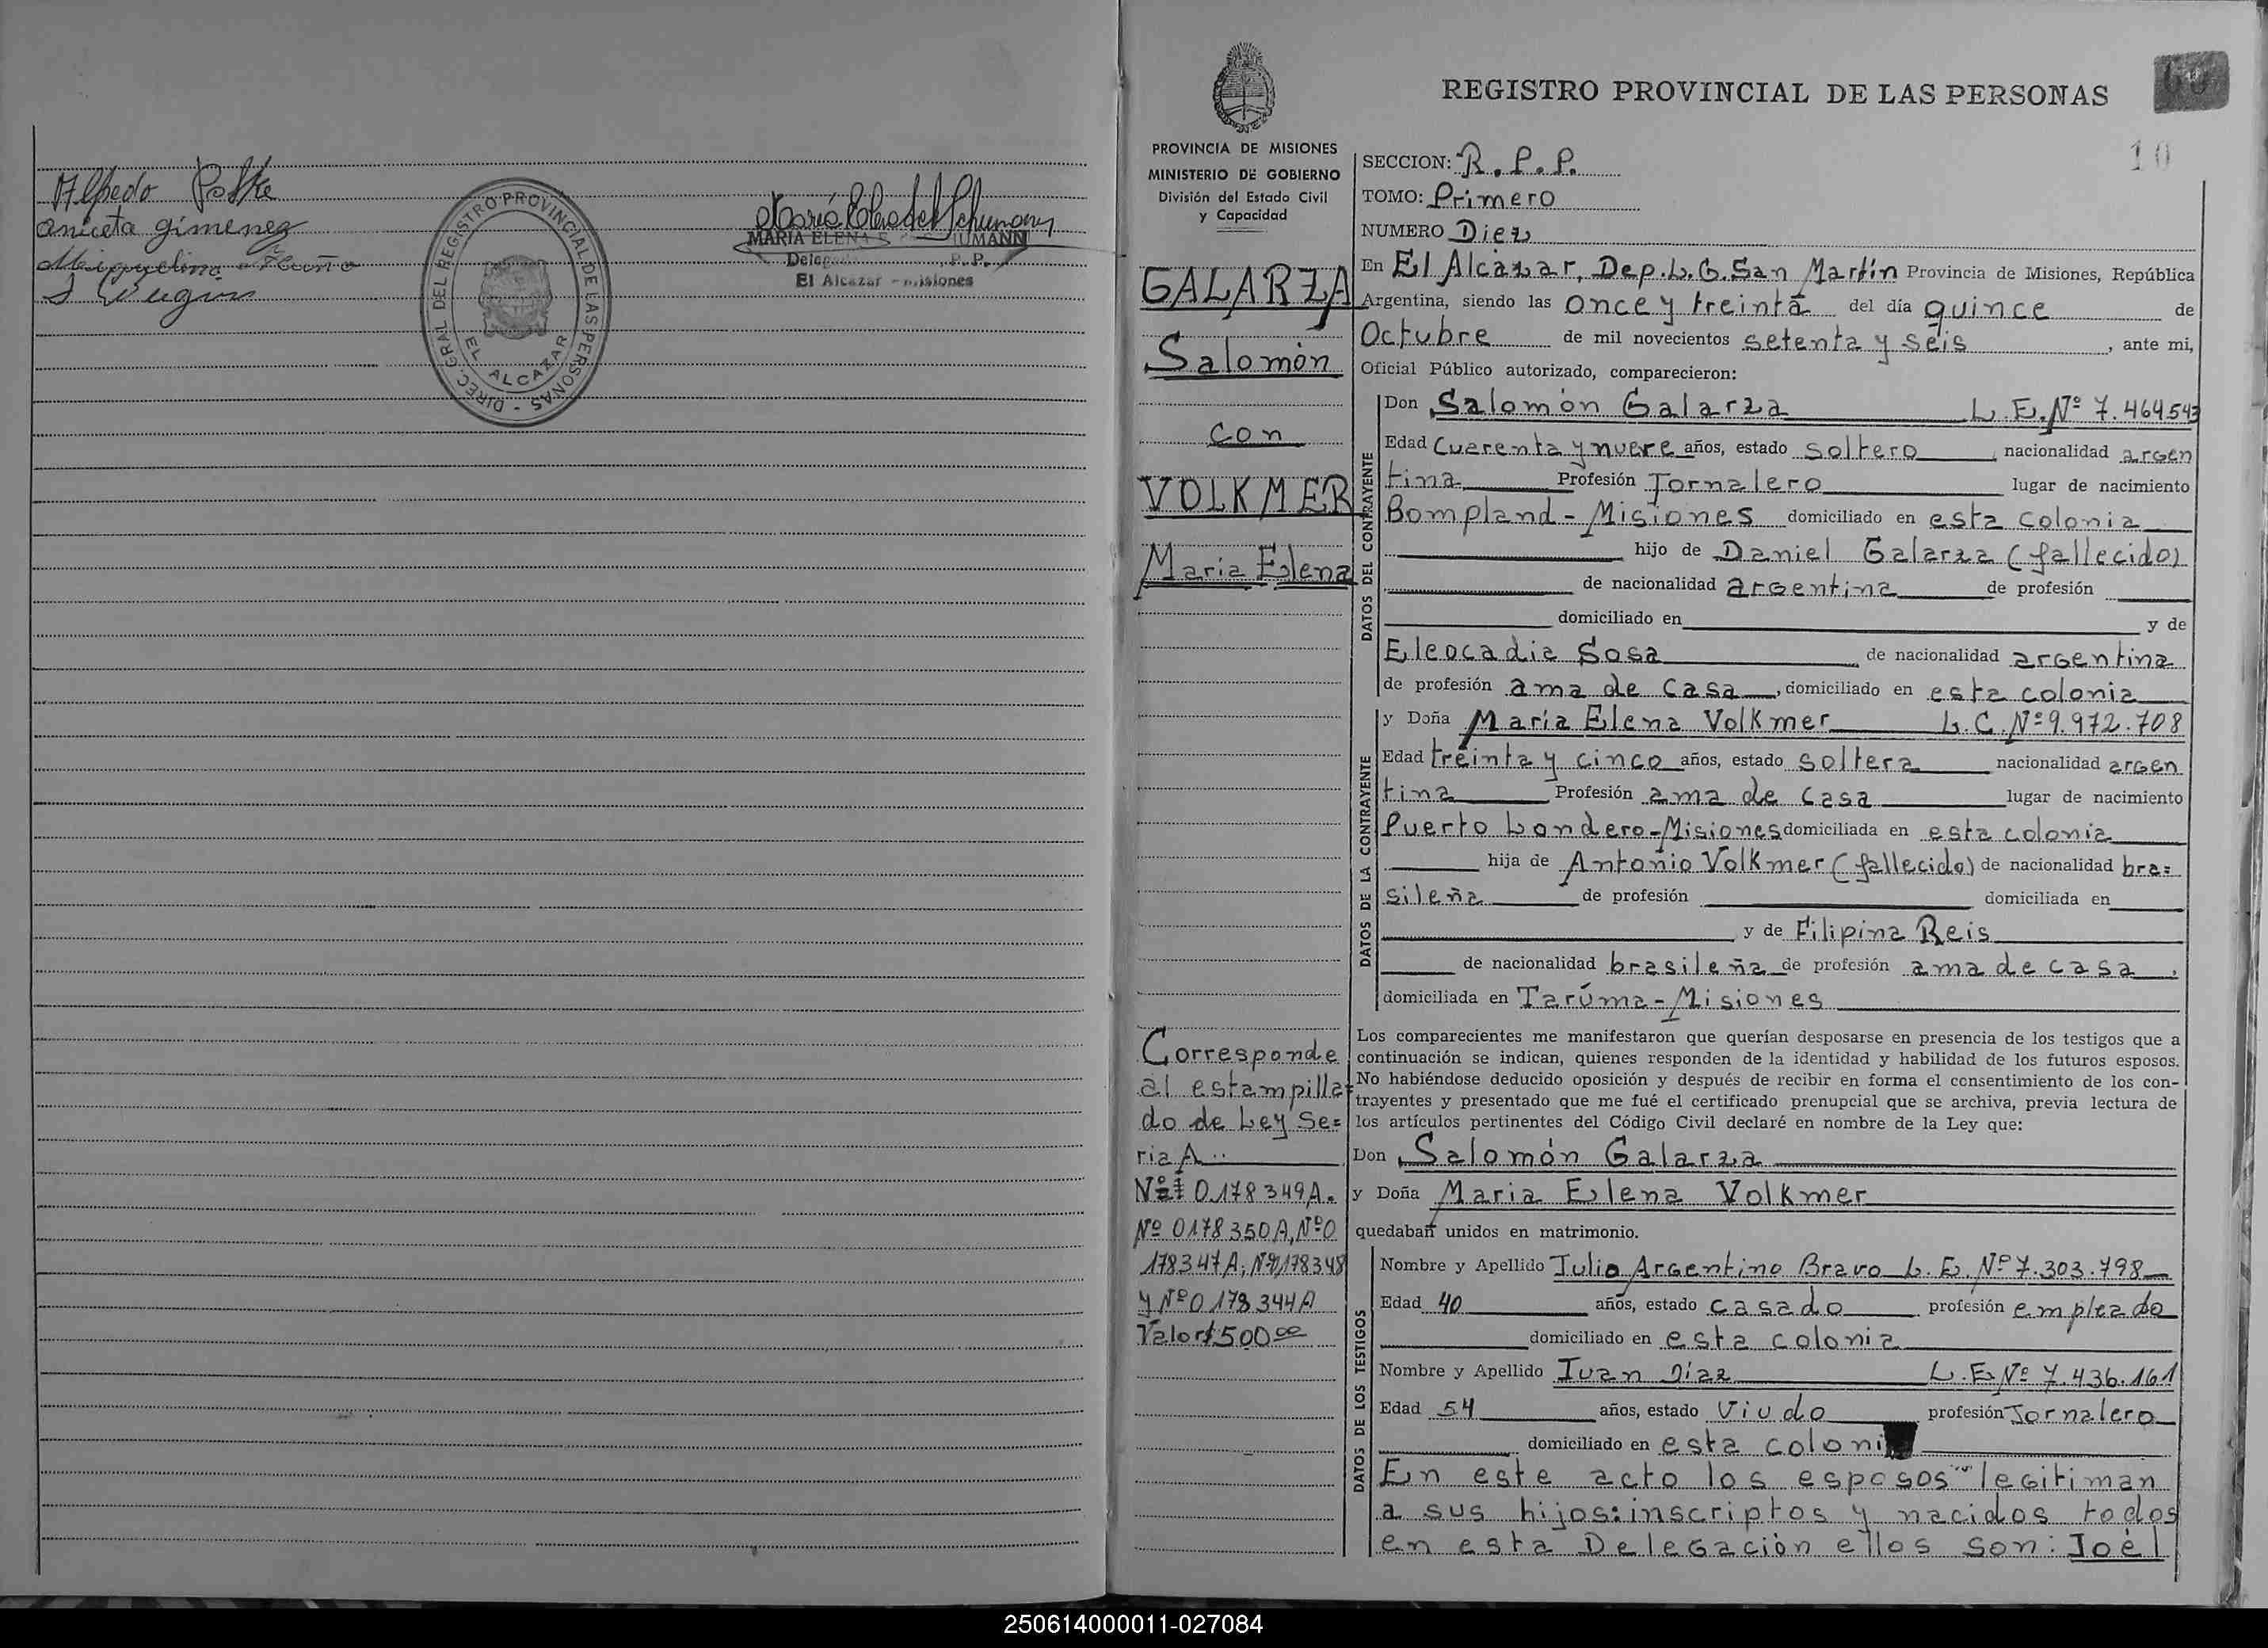 Alfredo
Aniceta Gimenez
DIREC. GRAL DEL REGISTRO PROVINCIAL DE LAS PERSONAS -
EL ALCAZAR
MARIA ELENA
El Alcazar - Misiones
REGISTRO PROVINCIAL DE LAS PERSONAS
10
PROVINCIA DE MISIONES
MINISTERIO DE GOBIERNO
División del Estado Civil
y Capacidad
GALARZA
Salomón
con
VOLKMER
Maria Elena
Corresponde
al estampilla=
do de Ley Se=
ria A..
0178349A.
Nº 0178350A, Nº0
178347A; 178348
y Nº0178344A
Valor $500 00
SECCION: R. P. P.
TOMO: Primero
NUMERO Diez
En El Alcázar, Dep. L. G. San Martín Provincia de Misiones, República
Argentina, siendo las once y treinta del día quince de
Octubre de mil novecientos setenta y seis, ante mi,
Oficial Público autorizado, comparecieron:
DATOS DEL CONTRAYENTE
Don Salomón Galarza L. E. Nº 7.464543
Edad Cuarenta y nueve años, estado soltero, nacionalidad argen
tina Profesión Jornalero lugar de nacimiento
Bompland - Misiones domiciliado en esta colonia
hijo de Daniel Galarza (fallecido)
de nacionalidad argentina de profesión
domiciliado en y de
Eleocadia Sosa de nacionalidad argentina
de profesión ama de casa, domiciliado en esta colonia
DATOS DE LA CONTRAYENTE
y Doña María Elena Volkmer L. C. Nº 9.972.708
Edad treinta y cinco años, estado soltera nacionalidad argen
tina Profesión ama de casa lugar de nacimiento
Puerto Londero - Misiones domiciliada en esta colonia
hija de Antonio Volkmer (fallecido) de nacionalidad bra=
sileña de profesión domiciliada en
y de Filipina Reis
de nacionalidad brasileña de profesión ama de casa,
domiciliada en Tarúma - Misiones
Los comparecientes me manifestaron que querían desposarse en presencia de los testigos que a
continuación se indican, quienes responden de la identidad y habilidad de los futuros esposos.
No habiéndose deducido oposición y después de recibir en forma el consentimiento de los con-
trayentes y presentado que me fué el certificado prenupcial que se archiva, previa lectura de
los artículos pertinentes del Código Civil declaré en nombre de la Ley que:
Don Salomón Galarza
y Doña Maria Elena Volkmer
quedaban unidos en matrimonio.
DATOS DE LOS TESTIGOS
Nombre y Apellido Julio Argentino Bravo L. E. Nº 7.303.798
Edad 40 años, estado casado profesión empleado
domiciliado en esta colonia
Nombre y Apellido Juan Díaz L. E. Nº 7.436.161
Edad 54 años, estado Viudo profesión Jornalero
domiciliado en esta colonia
En este acto los esposos legitiman
a sus hijos: inscriptos y nacidos todos
en esta Delegación ellos son: Joél
250614000011-027084